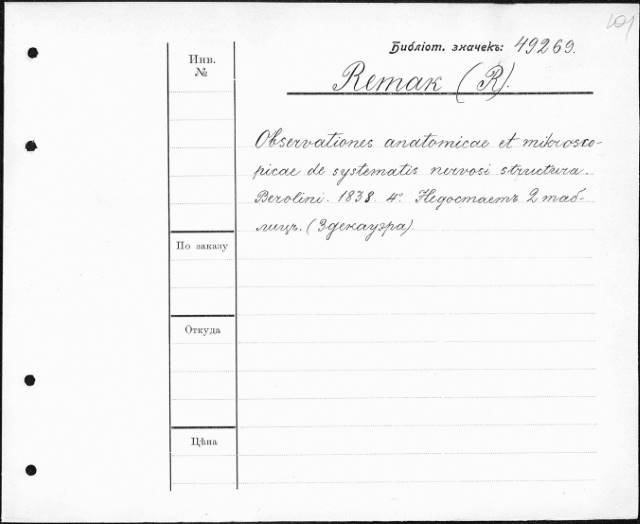 Библіот. значекъ: 49269.
Инв.
№
Remak (R).
Observationes anatomicae et mikrosco-
picae de systematis nervosi structura.
Berolini. 1838. 4° Недостаетъ 2 таб-
лицъ. (Эдекауэра)
По заказу
Откуда
Цѣна